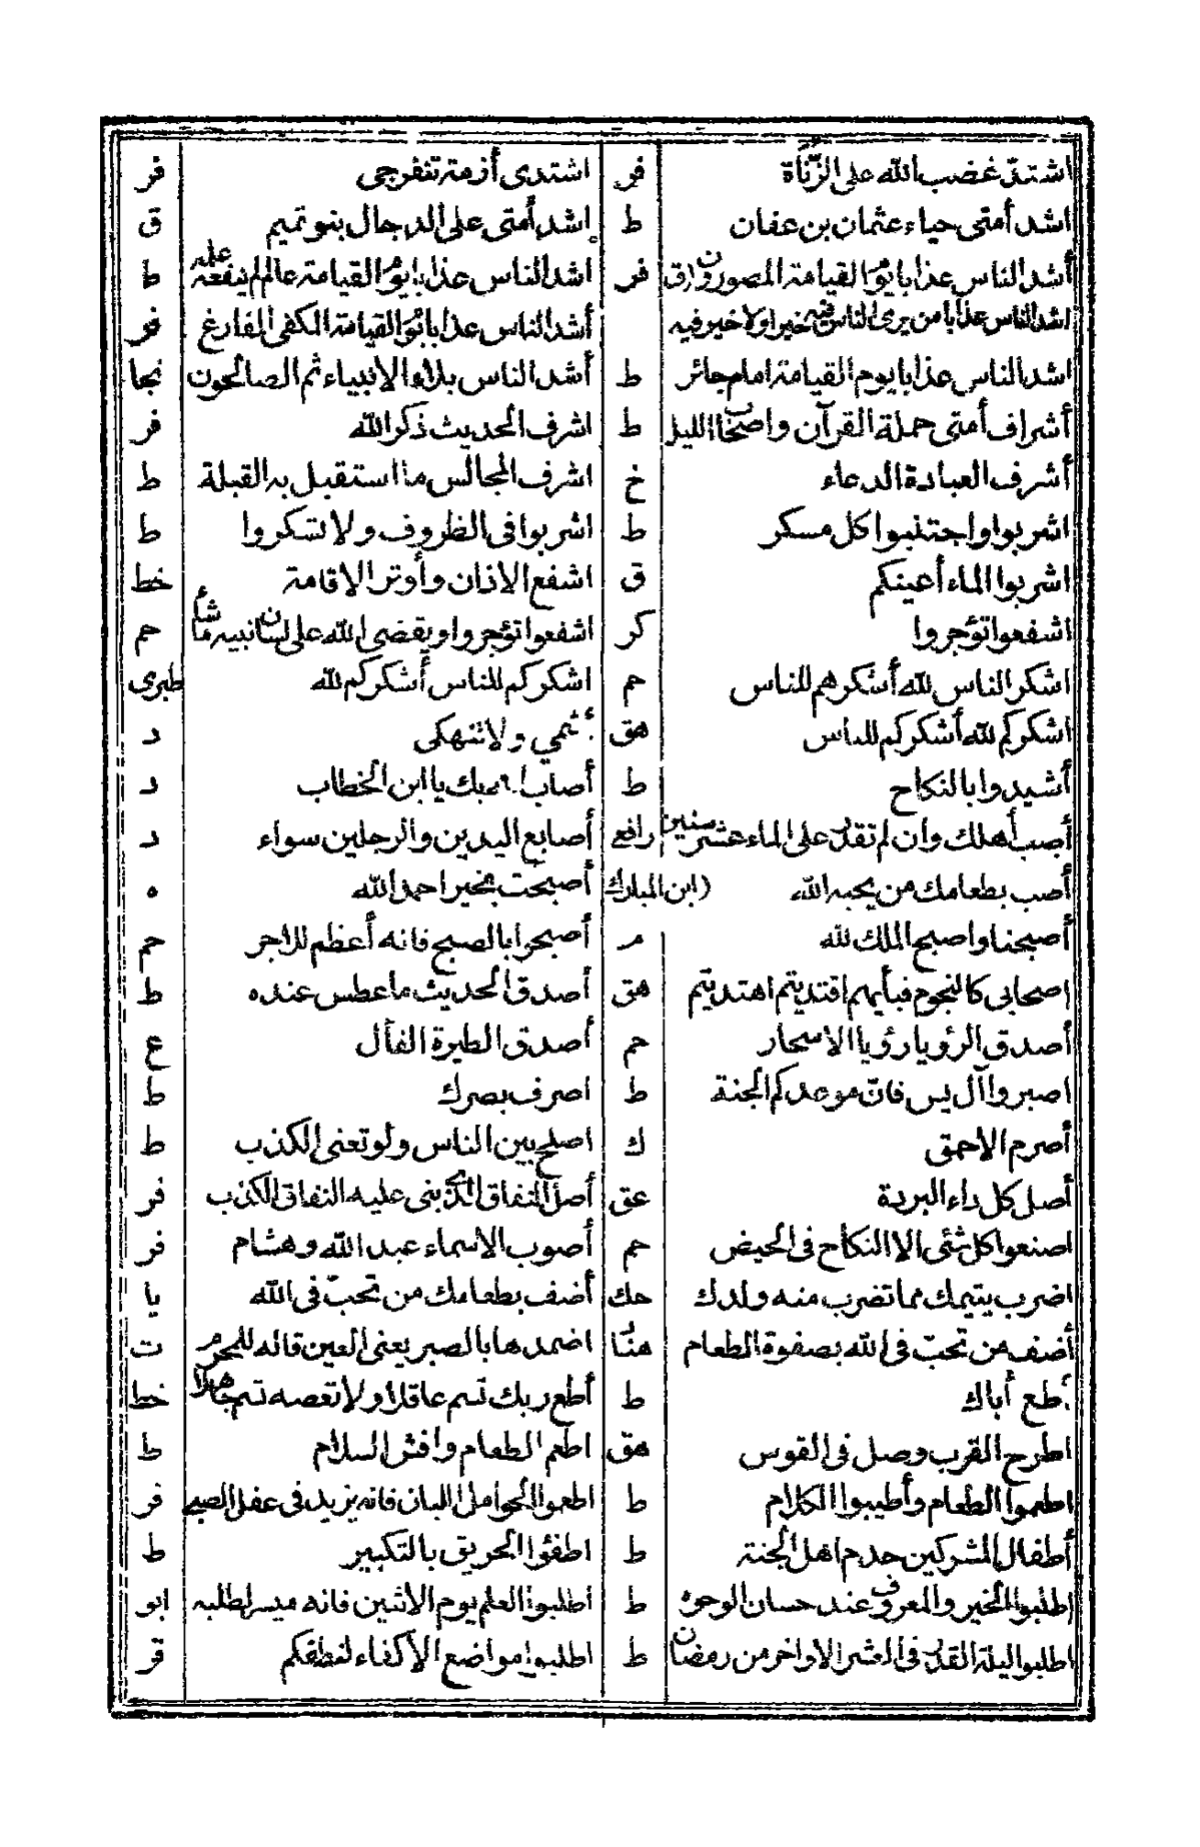 اشتدّ غضب الله على الزّناة فر اشتدى أزمة تنفرجى فر
اشد أمتى حياء عثمان بن عفان ط اشد أمتى على الدجال بنو تميم ق
أشد الناس عذابا يوم القيامة المصورون (ق فر اشد الناس عذابا يوم القيامة عالم لم ينفعه علمه ط
اشد الناس عذابا من يرى الناس فيه خيرا ولا خير فيه أشد الناس عذابا يوم القيامة المكفى الفارغ فر
اشد الناس عذابا يوم القيامة امام جائر ط أشد الناس بلاء الانبياء ثم الصالحون نجا
أشراف أمتى حملة القرآن واصحاب الليل ط اشرف الحديث ذكر الله فر
أشرف العبادة الدعاء خ اشرف المجالس ما استقبل به القبلة ط
اشربوا واجتنبوا كل مسكر ط اشربوا فى الظروف ولا تسكروا ط
اشربوا الماء أعينكم ق اشفع الاذان وأوتر الاقامة خط
اشفعوا تؤجروا كر اشفعوا تؤجروا ويقضى الله على لسان نبيه ما شأ حم
اشكر الناس لله أشكرهم للناس حم اشكركم للناس أشكركم لله طبرى
اشكركم لله أشكركم للناس هق أشمي ولا تنهكى د
أشيدوا بالنكاح ط أصاب الله بك يا ابن الخطاب د
أصب أهلك وان لم تقدر على الماء عشر سنين رافع أصابع اليدين والرجلين سواء د
أصب بطعامك من يحبه الله (ابن المبارك أصبحت بخير احمد الله ه
أصبحنا واصبح الملك لله م أصبحوا بالصبح فانه أعظم للاجر حم
اصحابى كالنجوم فبأيهم اقتديتم اهتديتم هق أصدق الحديث ما عطس عنده ط
أصدق الرؤيا رؤيا الاسحار حم أصدق الطيرة الفأل ع
اصبروا آل يس فانّ موعدكم الجنة ط اصرف بصرك ط
أصرم الاحمق ك اصلح بين الناس ولو تعنى الكذب ط
أصل كل داء البردة عق أصل النفاق الذى بنى عليه النفاق الكذب فر
اصنعوا كل شئى الا النكاح فى الحيض حم أصوب الاسماء عبد الله وهشام فر
اضرب يتيمك مما تضرب منه ولدك حك أضف بطعامك من تحبّ فى الله يا
أضف من تحبّ فى الله بصفوة الطعام هنّاد اضمدها بالصبر يعنى العين قاله للمحرم ت
أطع أباك ط أطع ربك تسم عاقلا ولا تعصه تسم جاهلا خط
اطرح القرب وصل فى القوس هق اطعم الطعام وافش السلام ط
اطعموا الطعام وأطيبوا الكلام ط اطعموا الحوامل اللبان فانه يزيد فى عقل الصبى فر
أطفال المشركين خدم اهل الجنة ط اطفؤا الحريق بالتكبير ط
اطلبوا الخير والمعروف عند حسان الوجوه ط اطلبوا العلم يوم الاثنين فانه ميسر لطلبه ابو
اطلبوا ليلة القدر فى العشر الاواخر من رمضان ط اطلبوا مواضع الأكفاء لنطفكم قر